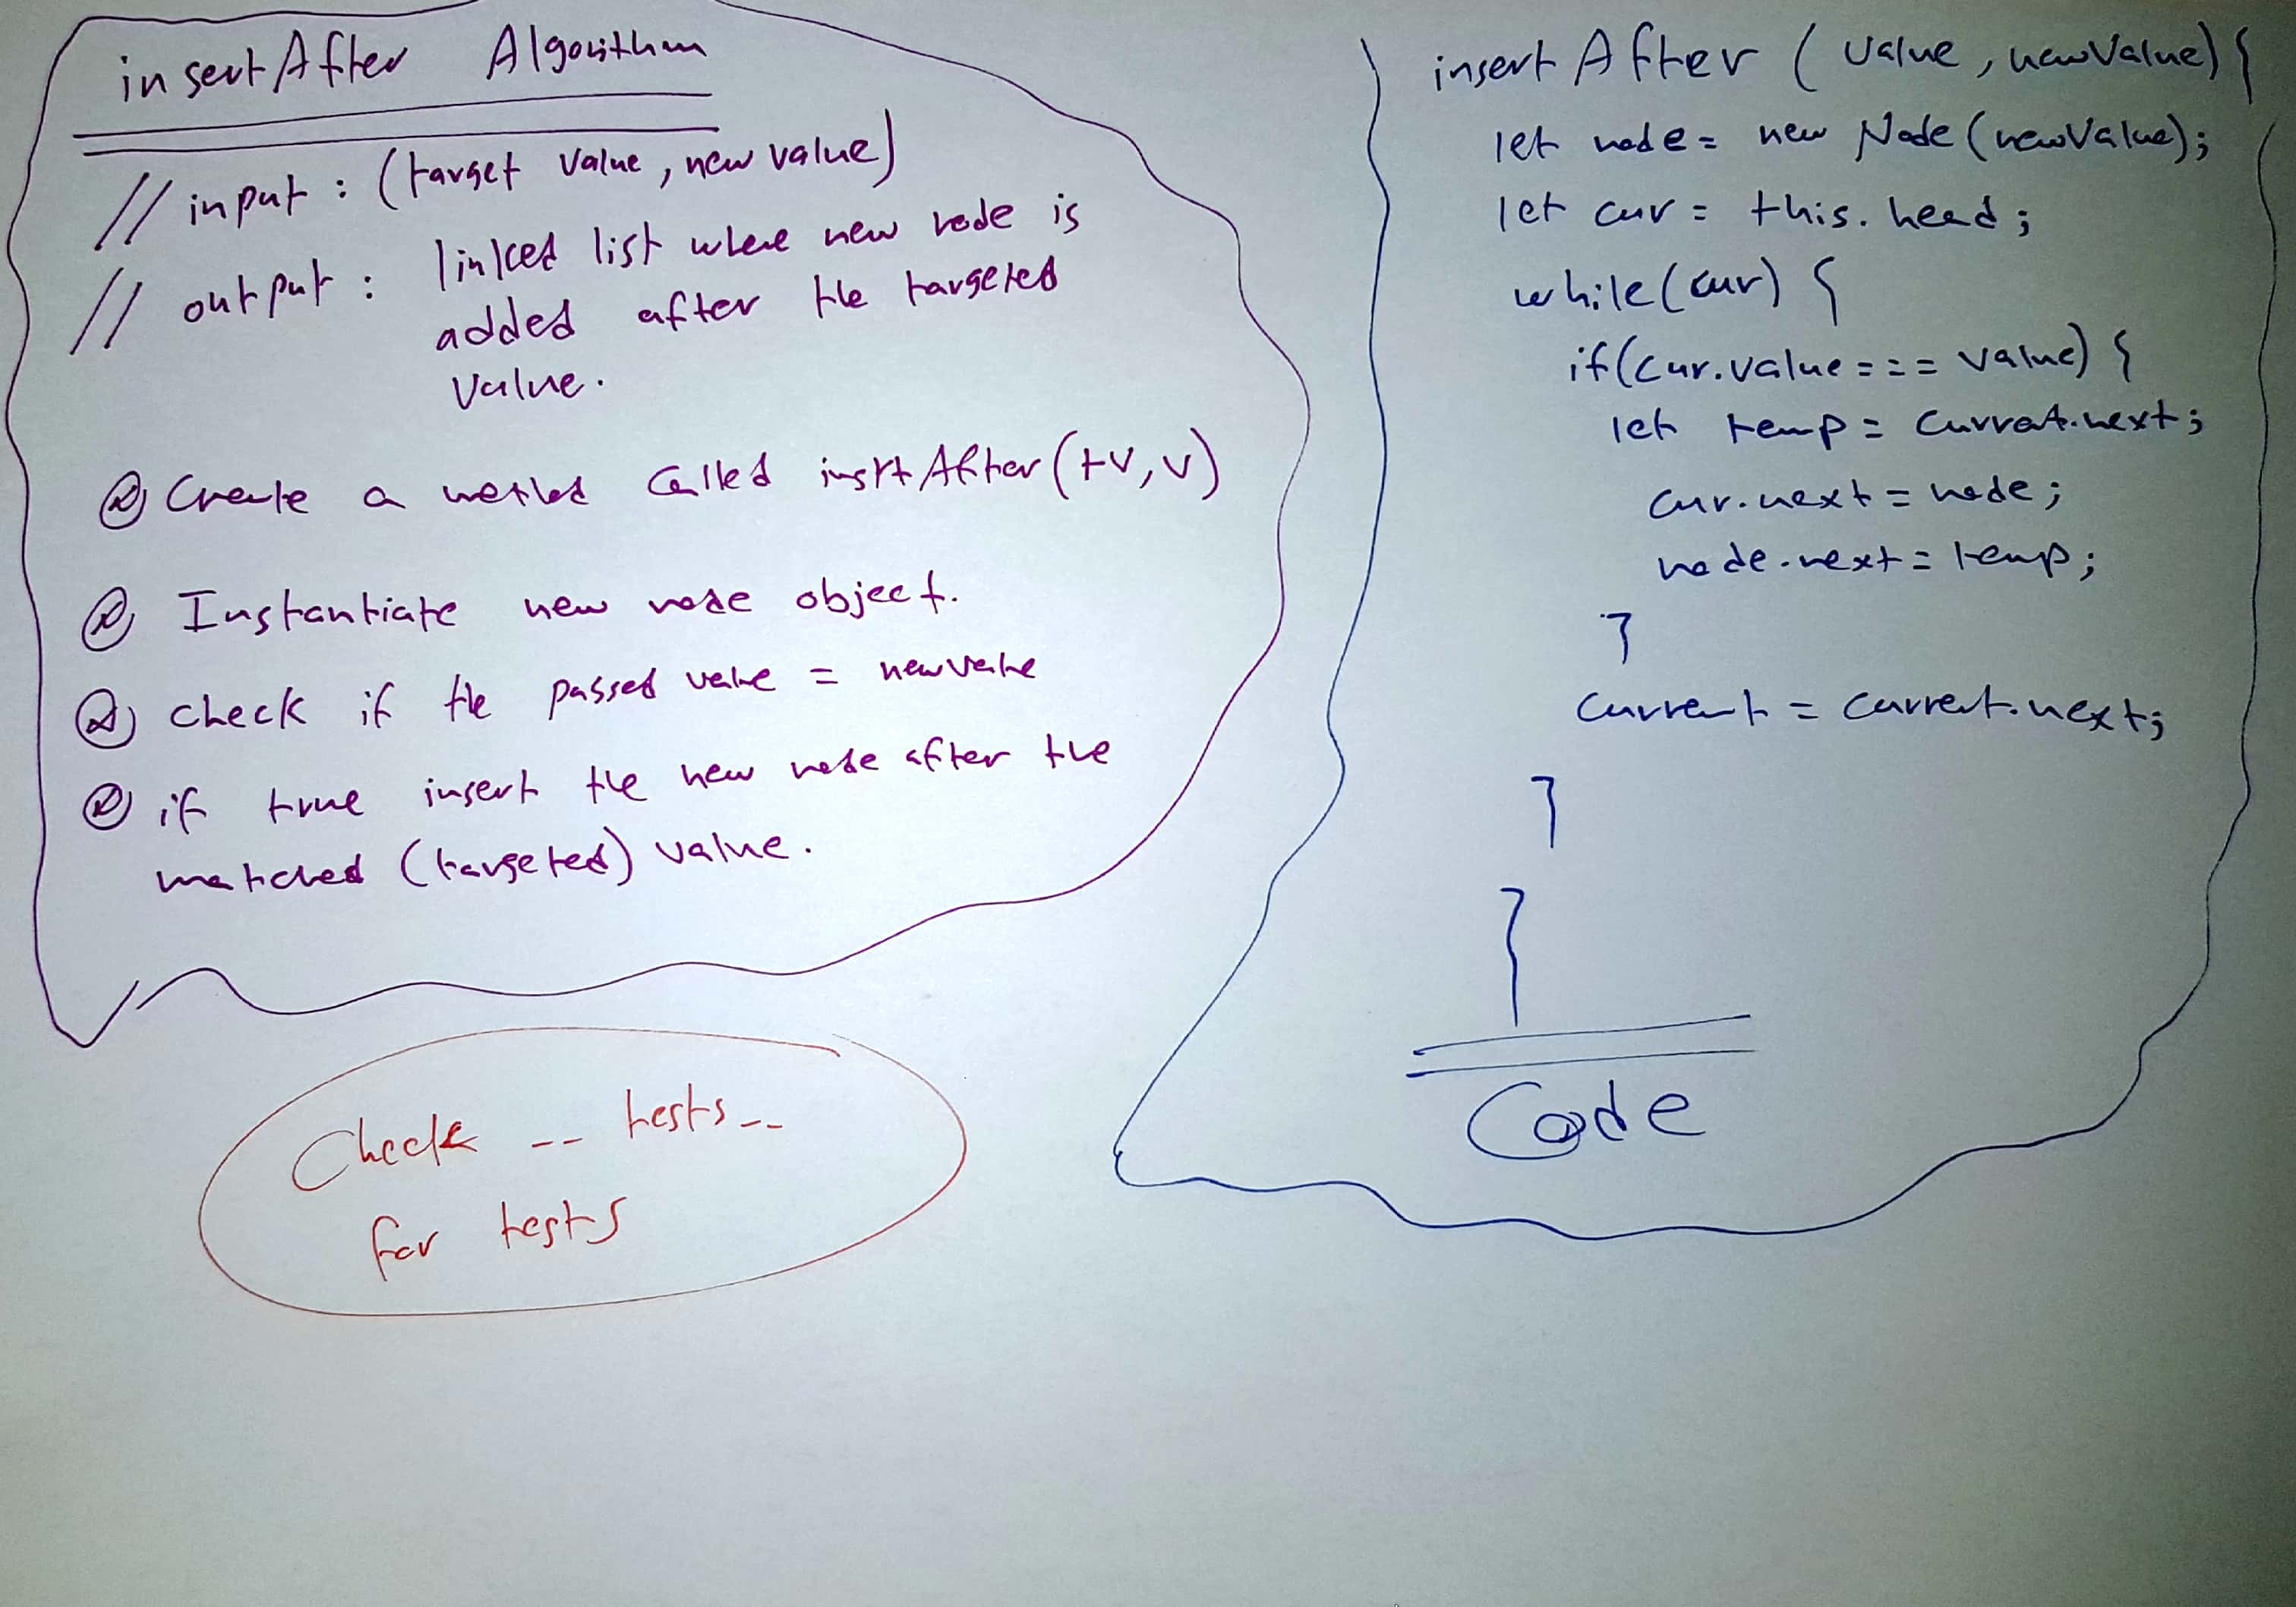 insertAfter Algorithm
// input : (target value, new value)
// output : linked list where new node is
added after the targeted
value.
Create a method called insrtAfter(tv, v)
Instantiate new node object.
check if the passed value = newvalue
if true insert the new node after the
matched (targeted) value.
Check -- tests --
for tests
insertAfter ( value, newValue) {
let node = new Node (newValue);
let cur = this.head;
while(cur) {
if(cur.value === value) {
let temp = current.next;
cur.next = node;
node.next = temp;
}
current = current.next;
}
}
Code